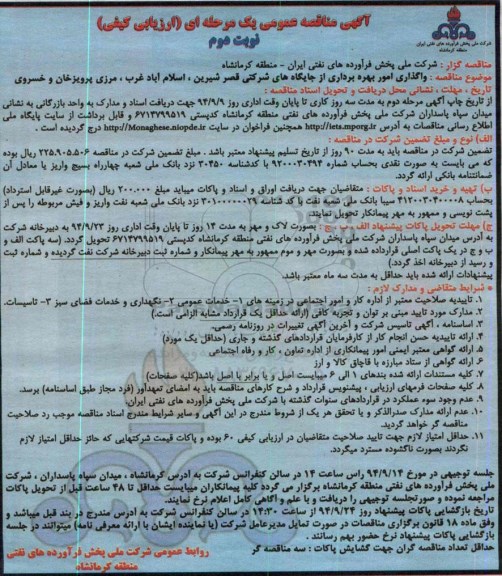 آگهی مناقصه عمومی یک مرحله ای (ارزیابی کیفی)
نوبت دوم
شرکت ملی پخش فرآورده های نفتی ایران
منطقه کرمانشاه
مناقصه گزار : شرکت ملی پخش فرآورده های نفتی ایران - منطقه کرمانشاه
موضوع مناقصه : واگذاری امور بهره برداری از جایگاه های شرکتی قصر شیرین ، اسلام آباد غرب ، مرزی پرویزخان و خسروی
تاریخ ، مهلت ، نشانی محل دریافت و تحویل اسناد مناقصه :
از تاریخ چاپ آگهی مرحله دوم به مدت سه روز کاری تا پایان وقت اداری روز ۹۴/۹/۹ جهت دریافت اسناد و مدارک به واحد بازرگانی به نشانی
میدان سپاه پاسداران شرکت ملی پخش فرآورده های نفتی منطقه کرمانشاه کدپستی ۶۷۱۴۷۹۹۵۱۹ و قابل برداشت از سایت پایگاه ملی
اطلاع رسانی مناقصات به آدرس http://iets.mporg.ir همچنین فراخوان در سایت http://Monaghese.niopdc.ir درج گردیده است .
الف) نوع و مبلغ تضمین شرکت در مناقصه :
تضمین شرکت در مناقصه باید به مدت ۹۰ روز از تاریخ تسلیم پیشنهاد معتبر باشد . مبلغ تضمین شرکت در مناقصه ۲۲۵.۹۰۵.۵۰۶ ریال بوده
که می بایست به صورت نقدی بحساب شماره ۹۲۰۰۰۳۰۴۹۴ با کدشناسه ۳۰۴۵۰ نزد بانک ملی شعبه چهارراه بسیج واریز یا معادل آن
ضمانتنامه بانکی ارائه گردد.
ب) تهیه و خرید اسناد و پاکات : متقاضیان جهت دریافت اوراق و اسناد و پاکات میباید مبلغ ۲۰۰.۰۰۰ ریال (بصورت غیرقابل استرداد)
بحساب ۴۱۲۰۰۳۰۴۰۰۰۰۸ سیبا بانک ملی شعبه نفت با کد شناسه ۳۰۱۰۰۰۰۰۰۲۹ نزد بانک ملی شعبه نفت واریز و فیش مربوطه را پس از
پشت نویسی و ممهور به مهر پیمانکار تحویل نمایند.
ج) مهلت تحویل پاکات پیشنهاد الف ، ب ، ج : بصورت لاک و مهر به مدت ۱۴ روز تا پایان وقت اداری روز ۹۴/۹/۲۳ به دبیرخانه شرکت
به آدرس میدان سپاه پاسداران شرکت ملی پخش فرآورده های نفتی منطقه کرمانشاه کدپستی ۶۷۱۴۷۹۹۵۱۹ تحویل گردد. (سه پاکت الف و
ب و ج در یک پاکت اصلی قرارداده شده و بصورت مهر و موم ممهور به مهر پیمانکار و شماره ثبت دبیرخانه شرکت نفت گردیده و شماره ثبت
و رسید از دبیرخانه اخذ گردد).
پیشنهادات ارائه شده باید حداقل به مدت سه ماه معتبر باشد.
* شرایط متقاضی و مدارک لازم :
۱. تاییدیه صلاحیت معتبر از اداره کار و امور اجتماعی در زمینه های ۱- خدمات عمومی ۲- نگهداری و خدمات فضای سبز ۳- تاسیسات.
۲. مدارک مورد تایید مبنی بر توان و تجربه کافی (ارائه حداقل یک قرارداد مشابه الزامی است.)
۳. اساسنامه ، آگهی تاسیس شرکت و آخرین آگهی تغییرات در روزنامه رسمی.
۴. ارائه تاییدیه حسن انجام کار از کارفرمایان قراردادهای گذشته و جاری (حداقل یک مورد)
۵. ارائه گواهی معتبر ایمنی امور پیمانکاری از اداره تعاون ، کار و رفاه اجتماعی
۶. ارائه گواهی از ستاد مبارزه با قاچاق کالا و ارز
۷. کلیه مستندات ارائه شده بندهای ۱ الی ۶ میبایست اصل و یا برابر با اصل باشد(کلیه صفحات)
۸. کلیه صفحات فرمهای ارزیابی ، پیشنویس قرارداد و شرح کارهای مناقصه باید به امضای تعهدآور (فرد مجاز طبق اساسنامه) برسد.
۹. عدم وجود سوء عملکرد در قراردادهای سنوات گذشته با شرکت ملی پخش فرآورده های نفتی ایران.
۱۰. عدم ارائه مدارک صدرالذکر و یا تحقق هر یک از شروط مندرج در این آگهی و سایر شرایط مندرج اسناد مناقصه موجب رد صلاحیت
مناقصه گر خواهد گردید.
۱۱. حداقل امتیاز لازم جهت تایید صلاحیت متقاضیان در ارزیابی کیفی ۶۰ بوده و پاکات قیمت شرکتهایی که حائز حداقل امتیاز لازم
نگردند بصورت ناگشوده مسترد میگردد.
جلسه توجیهی در مورخ ۹۴/۹/۱۴ راس ساعت ۱۴ در سالن کنفرانس شرکت به آدرس کرمانشاه ، میدان سپاه پاسداران ، شرکت
ملی پخش فرآورده های نفتی منطقه کرمانشاه برگزار می گردد کلیه پیمانکاران میبایست حداقل تا ۴۸ ساعت قبل از تحویل پاکات
مراجعه نموده و صورتجلسه توجیهی را دریافت و با علم و آگاهی کامل اعلام نرخ نمایند.
تاریخ بازگشایی پاکات پیشنهاد روز ۹۴/۹/۲۴ از ساعت ۱۴:۳۰ در سالن کنفرانس شرکت به آدرس مندرج در بند قبل میباشد و
وفق ماده ۱۸ قانون برگزاری مناقصات در صورت تمایل مدیرعامل شرکت (یا نماینده ایشان با ارائه معرفی نامه) میتوانند در جلسه
بازگشایی پاکات پیشنهاد نرخ حضور بهم رسانند .
حداقل تعداد مناقصه گران جهت گشایش پاکات : سه مناقصه گر
روابط عمومی شرکت ملی پخش فرآورده های نفتی
منطقه کرمانشاه